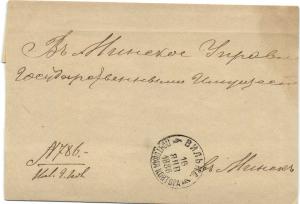 Въ Минское Управле
Государственными Имущества
№786.
ВИЛЬНА
16
ЯНВ
въ Минскъ